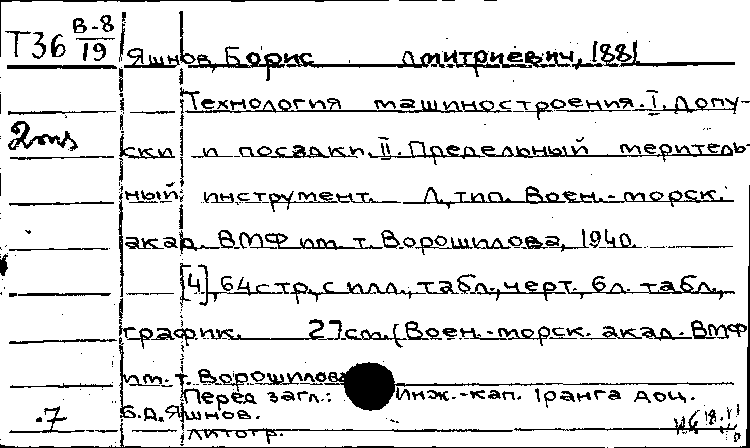 Т36 В-8/19
Яшнов, Борис Дмитриевич, 1881
Технология машиностроения. I. Допу-
2 экз
ски и посадки. II. Предельный меритель-
ный инструмент. Л, тип. Воен.-морск.
акад. ВМФ им. т. Ворошилова, 1940.
[4], 64 стр., с илл., табл., черт., 6 л. табл.,
график. 27 см. (Воен.-морск. акад. ВМФ
им. т. Ворошилова
Перед загл.: Инж.-кап. 1 ранга доц.
.7 Б.Д. Яшнов.
Литогр.